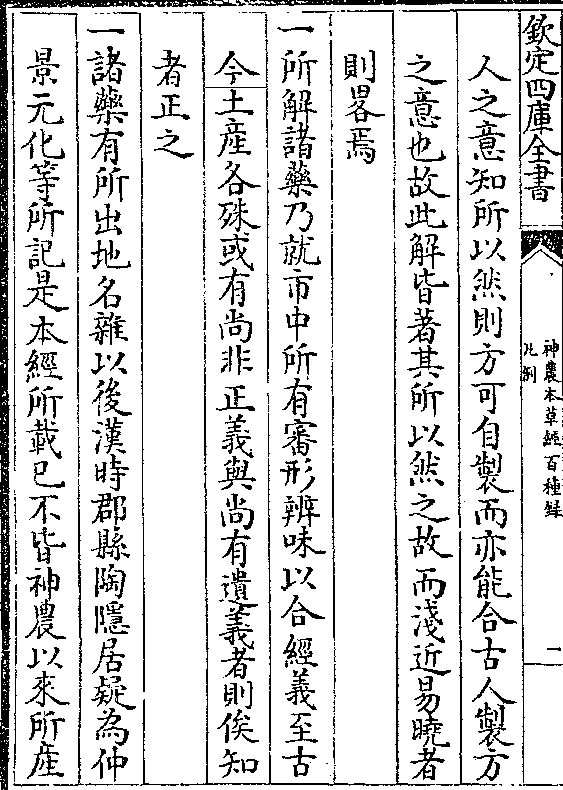 欽定四庫全書
神農本草經百種録
凡例
二
人之意知所以然則方可自製而亦能合古人製方
之意也故此解皆著其所以然之故而淺近易曉者
則畧焉
一所解諸藥乃就市中所有審形辨味以合經義至古
今土産各殊或有尚非正義與尚有遺義者則俟知
者正之
一諸藥有所出地名雜以後漢時郡縣陶隱居疑為仲
景元化等所記是本經所載已不皆神農以來所産